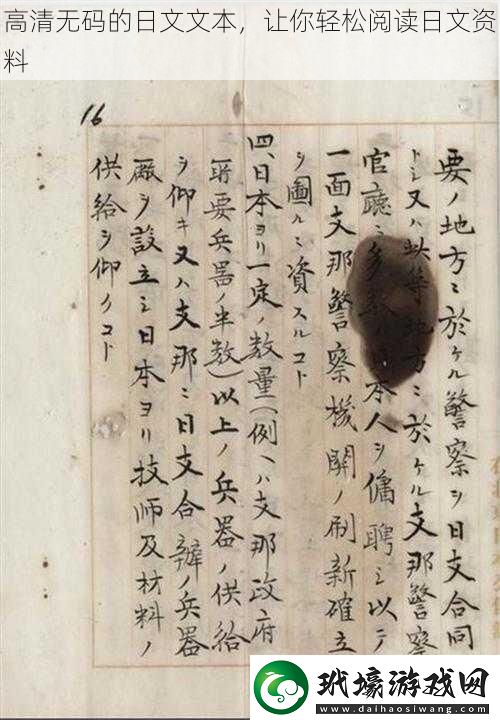 高清无码的日文文本，让你轻松阅读日文资
料
16
要ノ地方ニ於ケル警察ヲ日支合同
トシ又ハ此等地方ニ於ケル支那警察
官廳ニ多数ノ日本人ヲ傭聘シ以テ
一面支那警察機關ノ刷新確立
ヲ圖ルニ資スルコト
四、日本ヨリ一定ノ数量(例ヘハ支那政府
所要兵器ノ半数)以上ノ兵器ノ供給
ヲ仰キ又ハ支那ニ日支合辦ノ兵器
廠ヲ設立シ日本ヨリ技師及材料ノ
供給ヲ仰クコト
玳壕游戏网
www.daihaosiwang.com